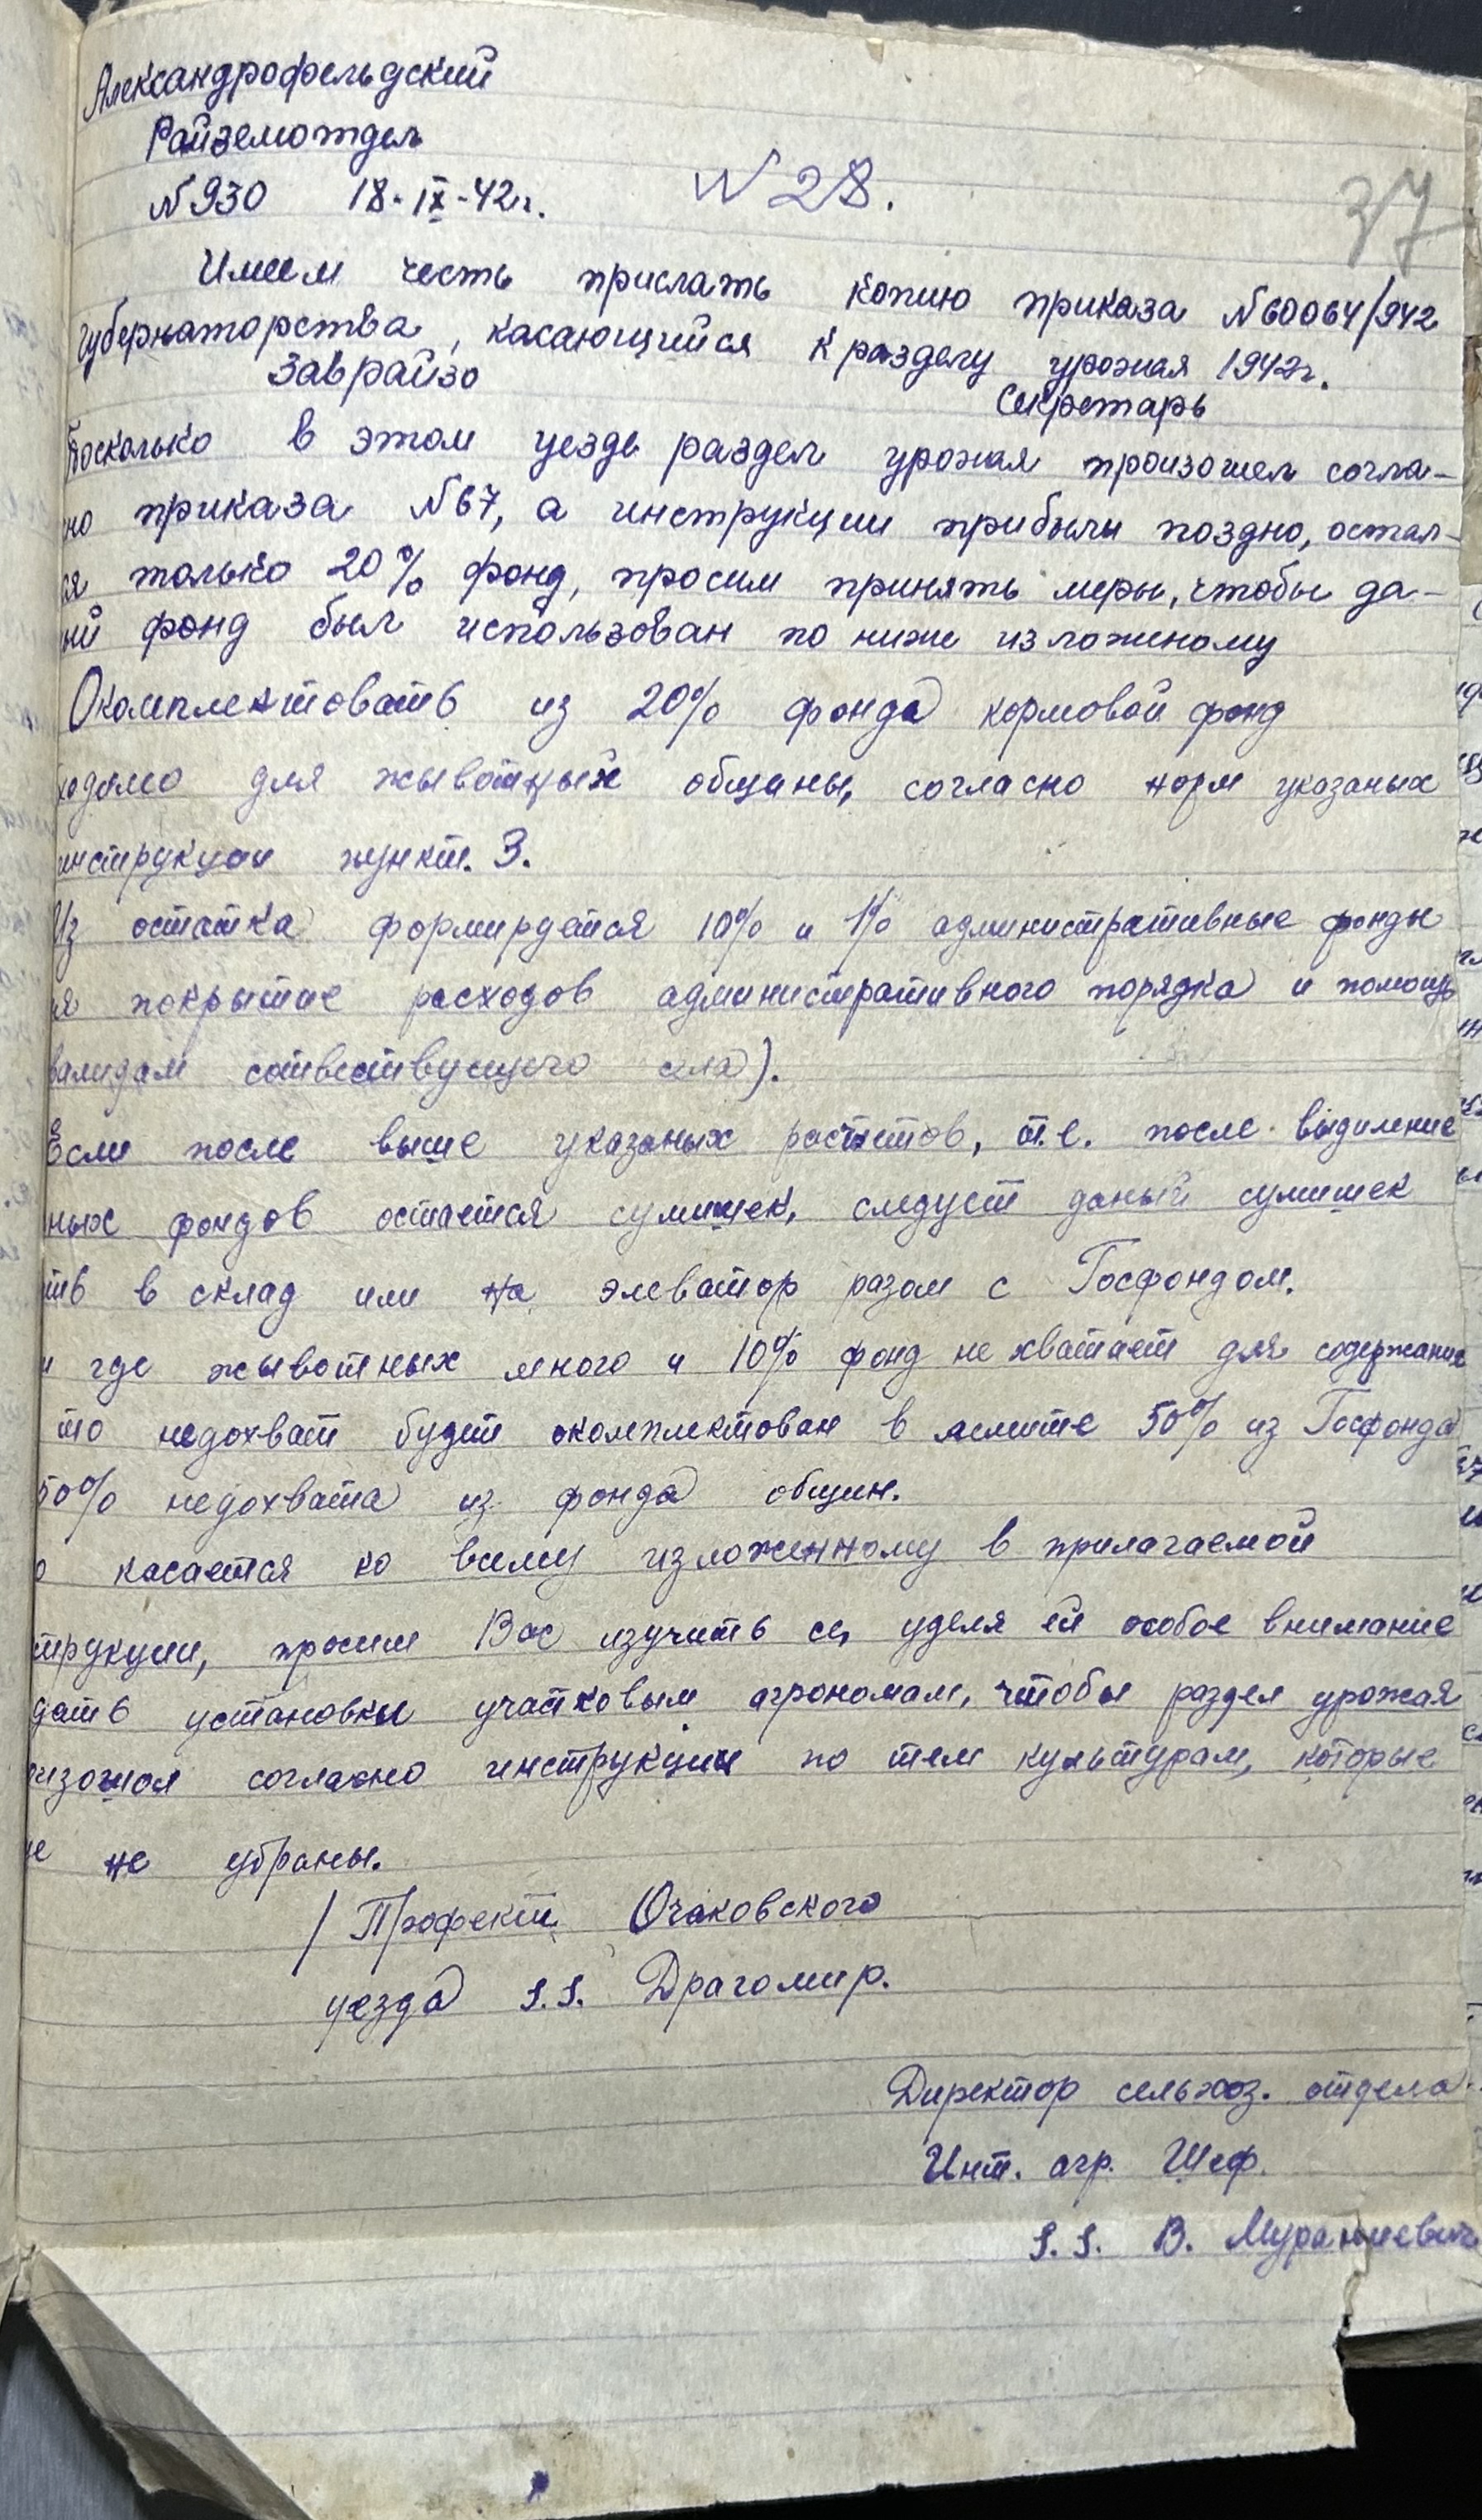 Александрофельдский
Райземотдел
№930 18·IX-42г. №28. 37
Имеем честь прислать копию приказа №60064/942
губернаторства, касающийся к разделу урожая 1942г.
Заврайзо
Секретарь
Посколько в этом уезде раздел урожая произошел согла-
но приказа №67, а инструкции прибыли поздно, остал-
ся только 20% фонд, просим принять меры, чтобы да-
ый фонд был использован по ниже изложеному
Окомплектовать из 20% фонда кормовой фонд
ходимо для жывотных общины, согласно норм указаных
инструкции пункт. 3.
Из остатка формируется 10% и 1% административные фонды
ия покрытие расходов административного порядка и помощь
валидам сотвествующего села).
Если после выше указаных растетов, т.е. после выделение
ных фондов остается сумишек, следует даный сумишек
ть в склад или на элеватор разом с Госфондом.
и где жывотных много и 10% фонд не хватает для содержание
то недохват будет окомплектован в лемите 50% из Госфонда
50% недохвата из фонда общин.
о касается ко всему изложенному в прилагаемой
трукции, просим Вас изучить ее, уделя ей особое внимание
дать установки учатковым агрономам, чтобы раздел урожая
изошол согласно инструкции по тем культурам, которые
е не убраны.
/ Префект Очаковского
уезда s.s. Драгомир.
Директор сельхоз. отдела
Инт. агр. Шеф.
s.s. В. Мураниевич